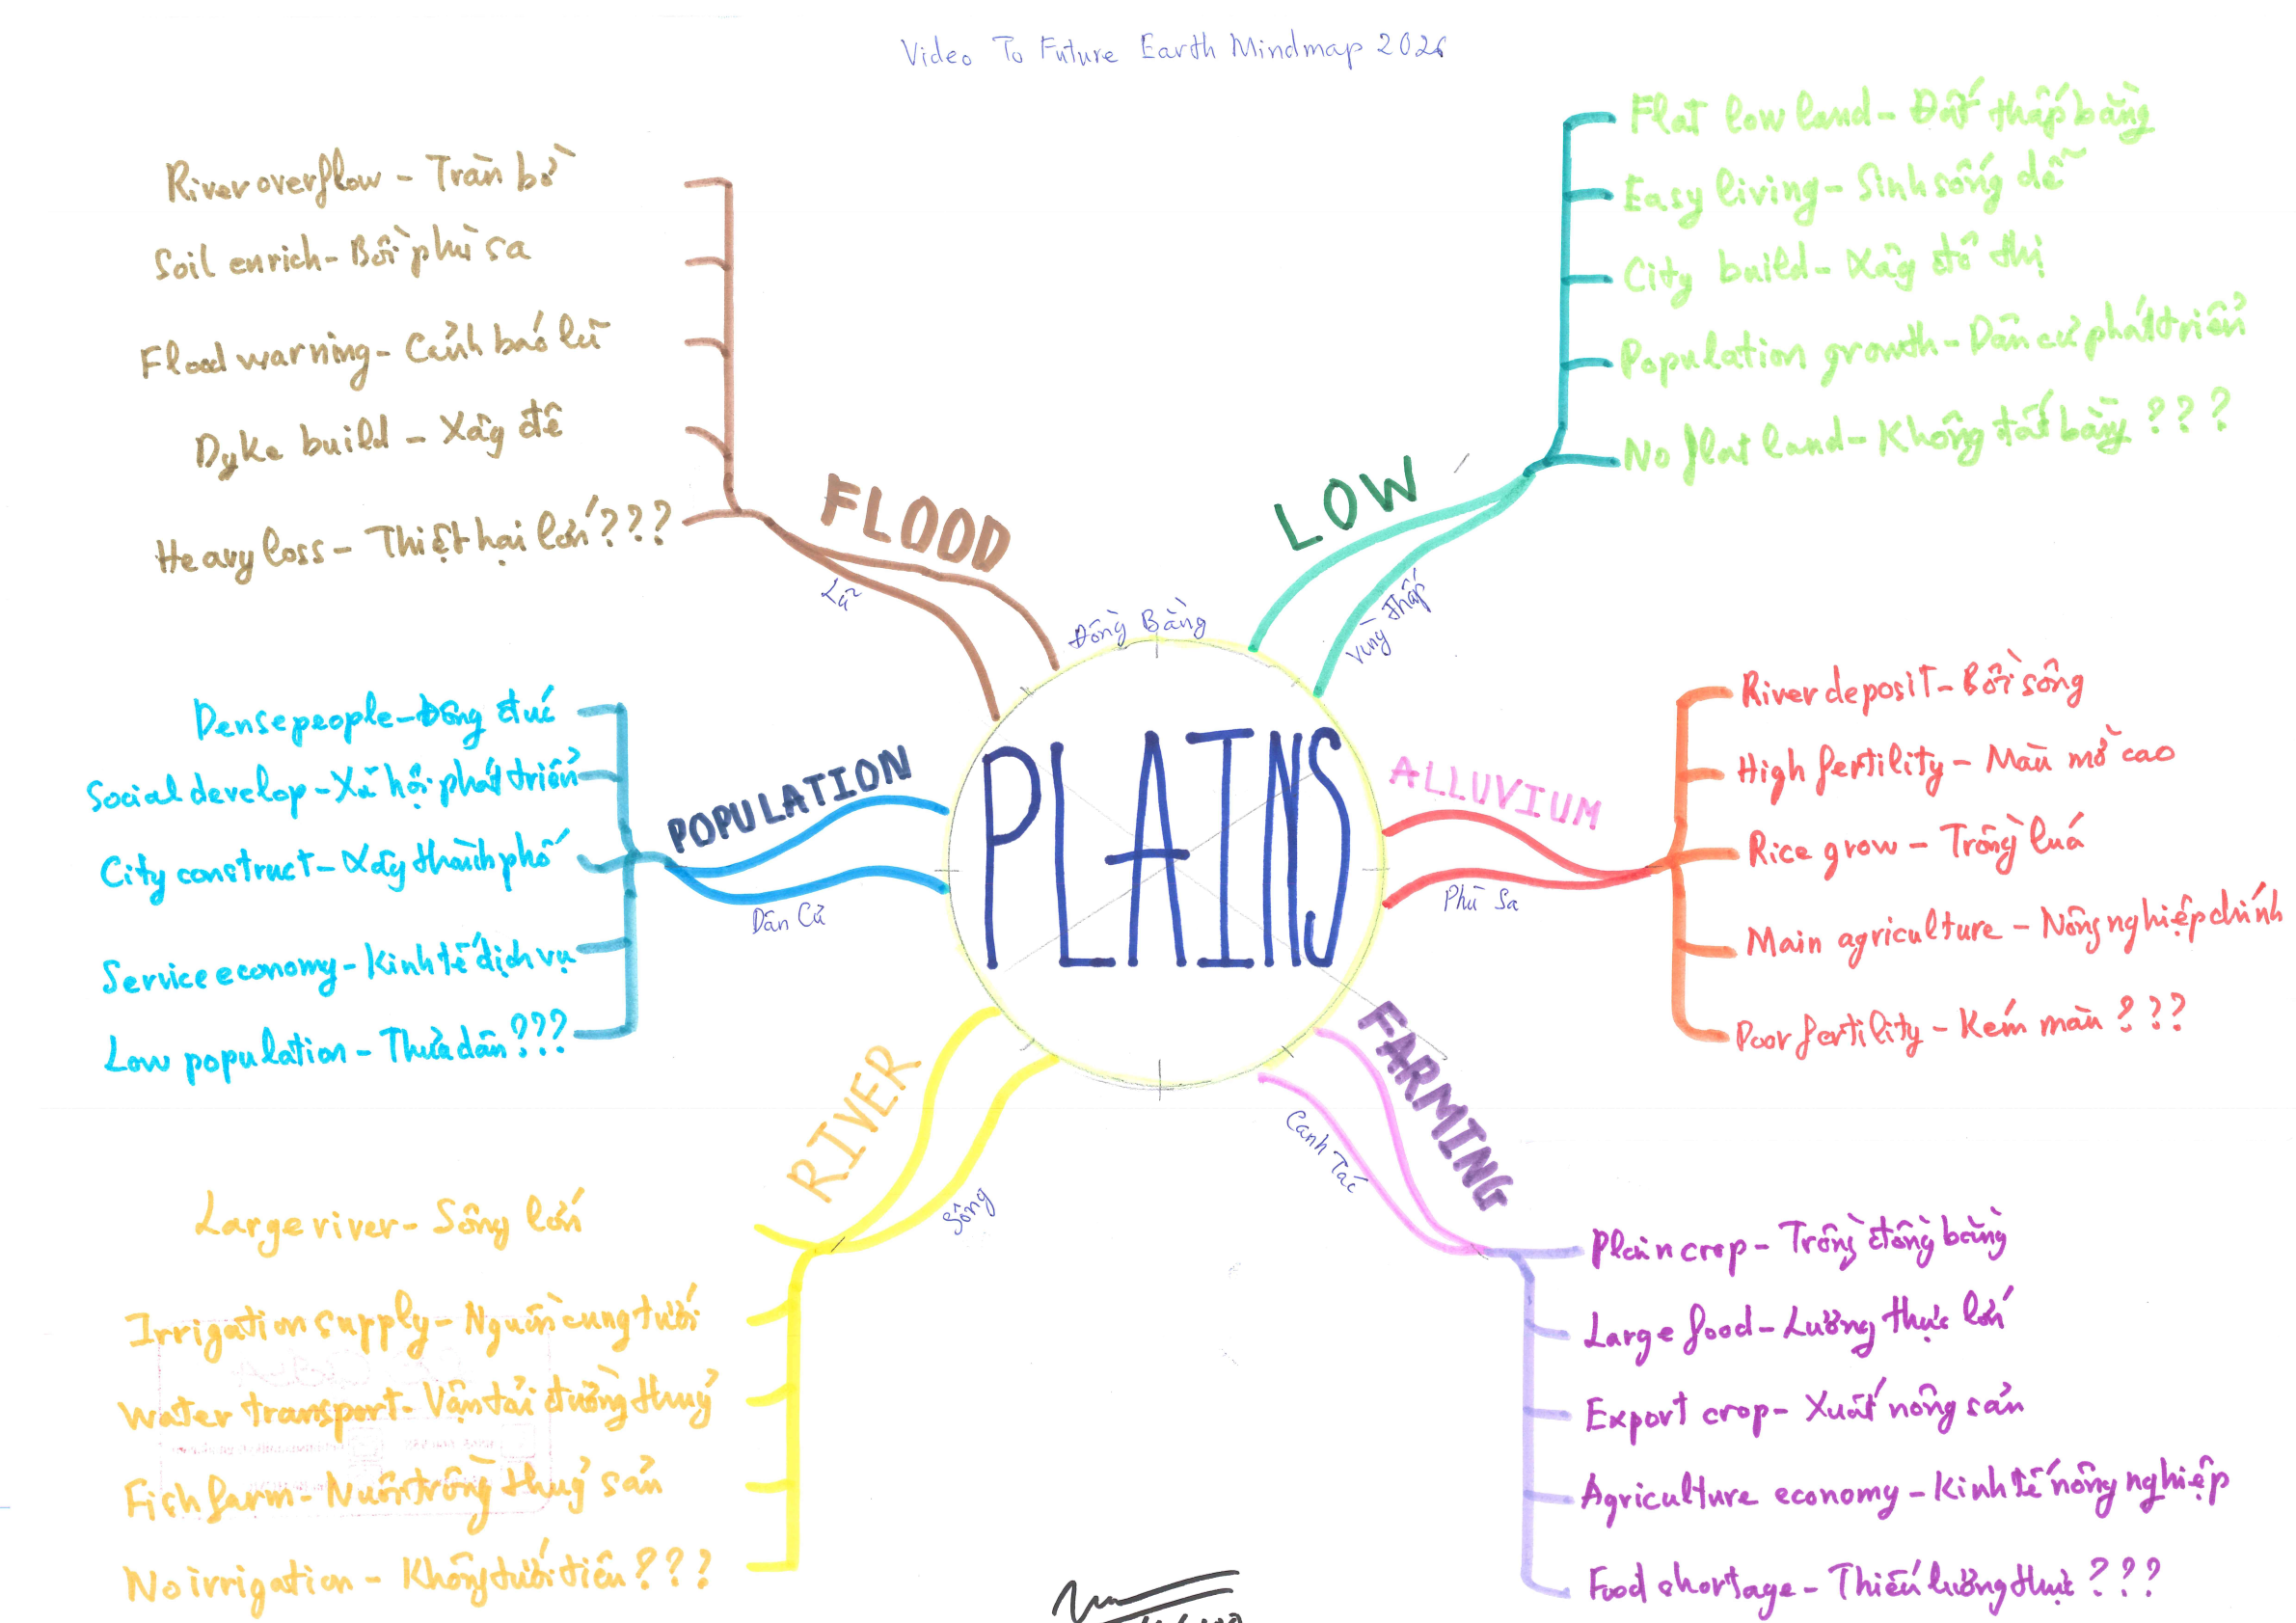 Video To Future Earth Mindmap 2026
River overflow - Tràn bờ
Soil enrich - Bồi phù sa
Flood warning - Cảnh báo lũ
Dyke build - Xây đê
Heavy loss - Thiệt hại lớn???
FLOOD
Lũ
Flat low land - Đất thấp bằng
Easy living - Sinh sống dễ
City build - Xây đô thị
Population growth - Dân cư phát triển
No flat land - Không đất bằng???
LOW
Vùng Thấp
Đồng Bằng
PLAINS
Dense people - Đông đúc
Social develop - Xã hội phát triển
City construct - Xây thành phố
Service economy - Kinh tế dịch vụ
Low population - Thưa dân???
POPULATION
Dân Cư
River deposit - Bồi sông
High fertility - Màu mỡ cao
Rice grow - Trồng lúa
Main agriculture - Nông nghiệp chính
Poor fertility - Kém màu???
ALLUVIUM
Phù Sa
RIVER
Sông
Large river - Sông lớn
Irrigation supply - Nguồn cung tưới
Water transport - Vận tải đường thuỷ
Fish farm - Nuôi trồng thuỷ sản
No irrigation - Không tưới tiêu???
FARMING
Canh Tác
Plain crop - Trồng đồng bằng
Large food - Lương thực lớn
Export crop - Xuất nông sản
Agriculture economy - Kinh tế nông nghiệp
Food shortage - Thiếu lương thực???